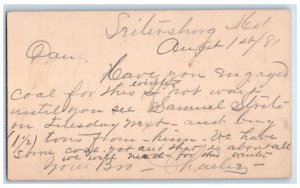 Md
August 1st/81
Dan.
Have you engaged
coal for this winter
if not wait
until you see Samuel
on Tuesday next and buy
1½ tons from him. We have
some coal yet and that is about all
we will need for this winter
Your Bro Charles